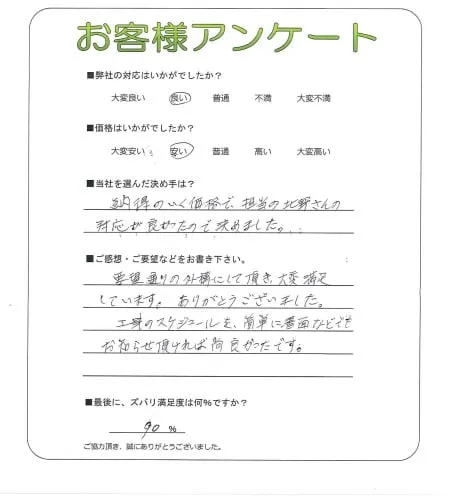 お客様アンケート
■弊社の対応はいかがでしたか?
大変良い 良い 普通 不満 大変不満
■価格はいかがでしたか?
大変安い 安い 普通 高い 大変高い
■当社を選んだ決め手は?
納得のいく価格で、担当の北野さんの
対応が良かったので決めました。
■ご感想・ご要望などをお書き下さい。
要望通りの外構にして頂き、大変満足
しています。ありがとうございました。
工事のスケジュールを、簡単に書面などででも
お知らせ頂ければ尚良かったです。
■最後に、ズバリ満足度は何%ですか?
90 %
ご協力頂き、誠にありがとうございました。